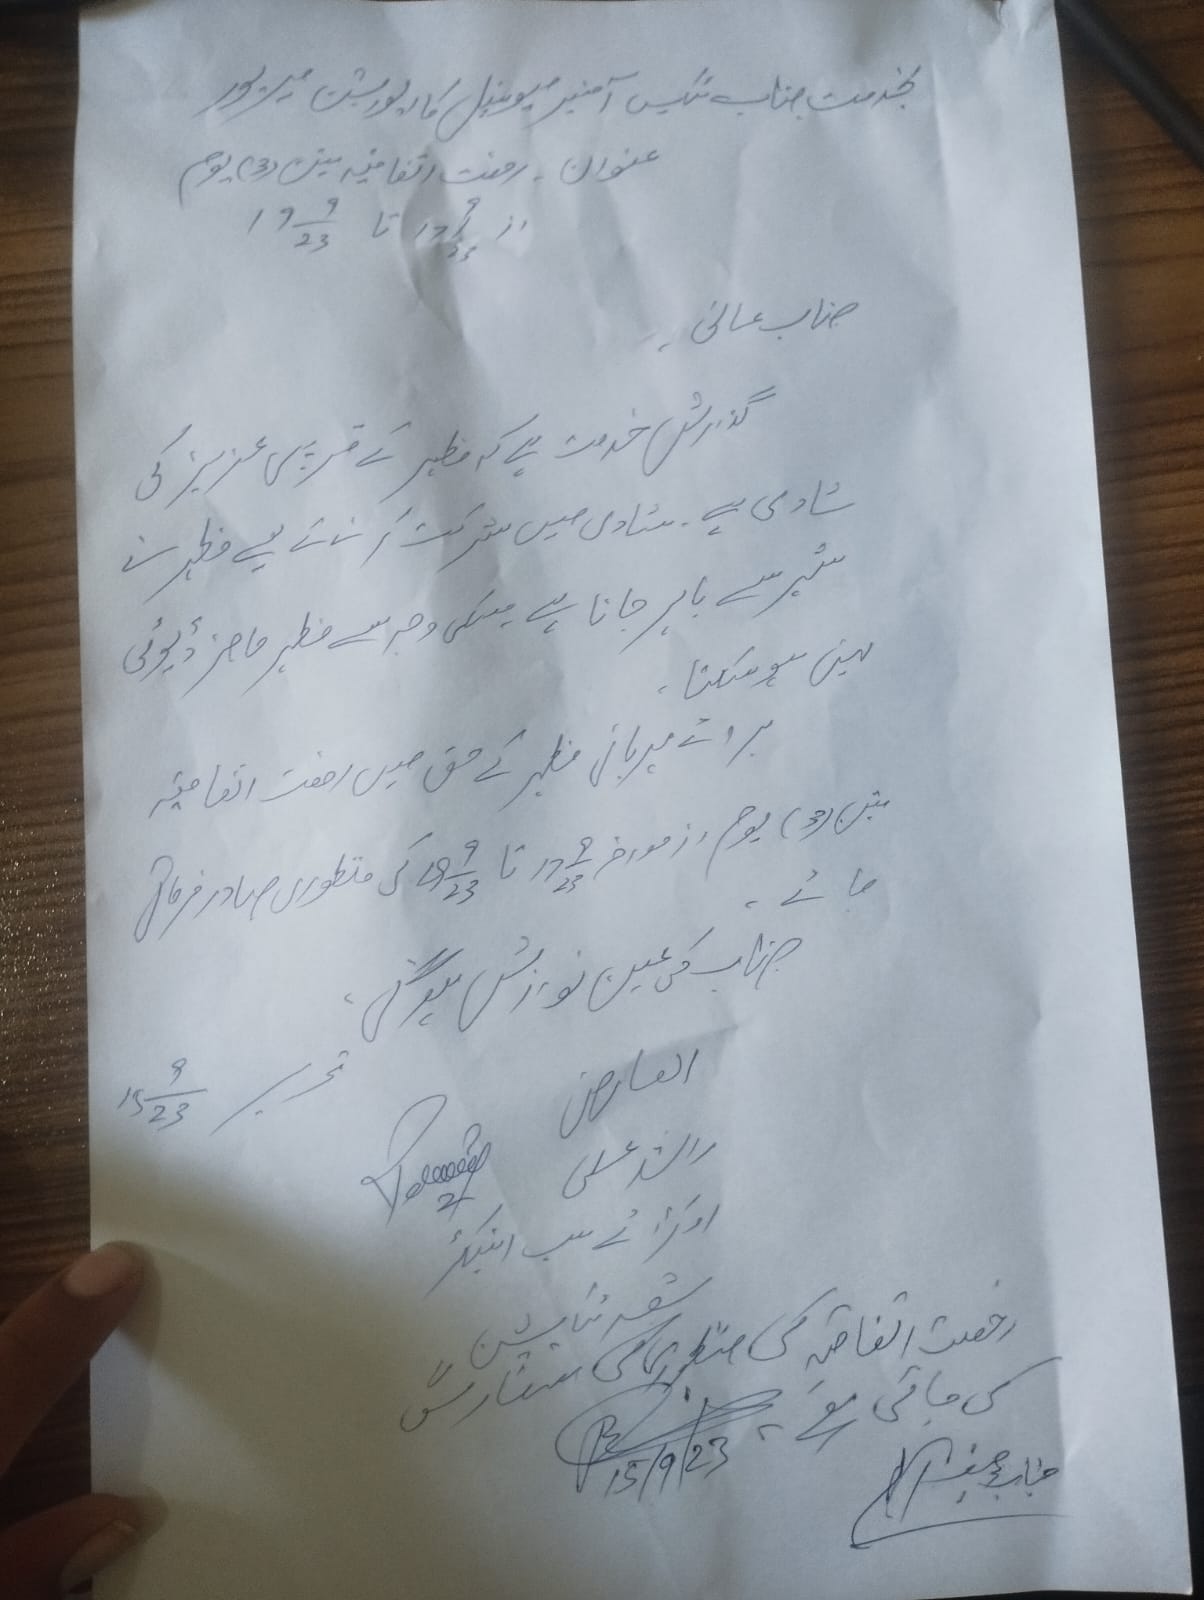 بخدمت جناب ٹیکس آفیسر میونسپل کارپوریشن میرپور
عنوان ۔ رخصت اتفاقیہ تین (3) یوم
از 17/9/23 تا 19/9/23
جناب عالی ۔
گذارش خدمت ہے کہ مظہر کے قریبی عزیز کی
شادی ہے ۔ شادی میں شرکت کرنے کے لیے مظہر نے
شہر سے باہر جانا ہے جسکی وجہ سے مظہر حاضر ڈیوٹی
نہیں ہو سکتا ۔
برائے مہربانی مظہر کے حق میں رخصت اتفاقیہ
تین (3) یوم از مورخہ 17/9/23 تا 19/9/23 کی منظوری صادر فرمائی
جائے ۔
جناب کی عین نوازش ہوگی ۔
تحریر 15/9/23
العارض
راشد علی
اوکٹرائے سب انسپکٹر
شعبہ
رخصت اتفاقیہ کی منظوری کی سفارش
کی جاتی ہے ۔
15/9/23
جناب چیف